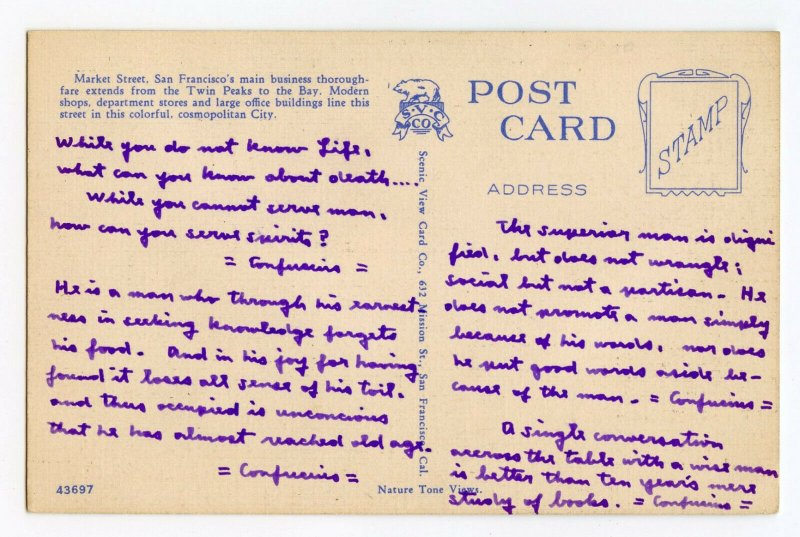 Market Street, San Francisco's main business thorough-
fare extends from the Twin Peaks to the Bay. Modern
shops, department stores and large office buildings line this
street in this colorful, cosmopolitan City.
S.V.C
CO
POST
CARD
STAMP
ADDRESS
While you do not know Life,
what can you know about death....
While you cannot serve man,
how can you serve spirits?
= Confusius =
He is a man who through his earnest-
ness in seeking knowledge forgets
his food. And in his joy for having
found it loses all sense of his toil.
and thus occupied is unconcious
that he has almost reached old age.
= Confusius =
Scenic View Card Co., 632 Mission St., San Francisco, Cal.
The superior man is digni
fied, but does not wrangle;
social but not a partisan. He
does not promote a man simply
because of his words, nor does
he put good words aside be-
cause of the man. = Confusius =
A single conversation
accross the table with a wise man
is better than ten year's mere
study of books. = Confusius =
43697
Nature Tone Views.